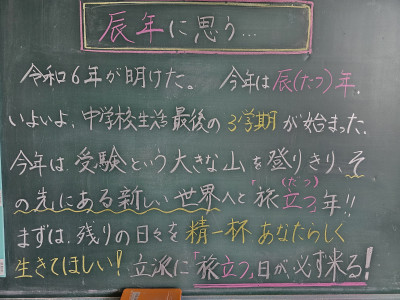 辰年に思う…
令和6年が明けた。 今年は辰(たつ)年。
いよいよ、中学校生活最後の3学期が始まった。
今年は、受験という大きな山を登りきり、そ
の先にある新しい世界へと「旅立つ(たつ)年!!
まずは、残りの日々を精一杯あなたらしく
生きてほしい! 立派に「旅立つ」日が、必ず来る!